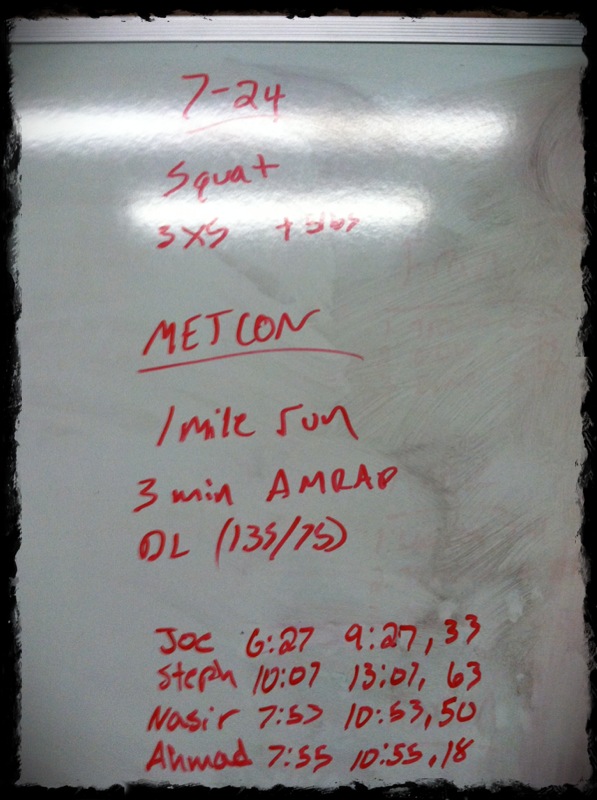 7-24
Squat
3X5 +5lbs
METCON
1 mile run
3 min AMRAP
DL (135/75)
Joe 6:27 9:27, 33
Steph 10:07 13:07, 63
Nasir 7:53 10:53, 50
Ahmad 7:55 10:55, 18